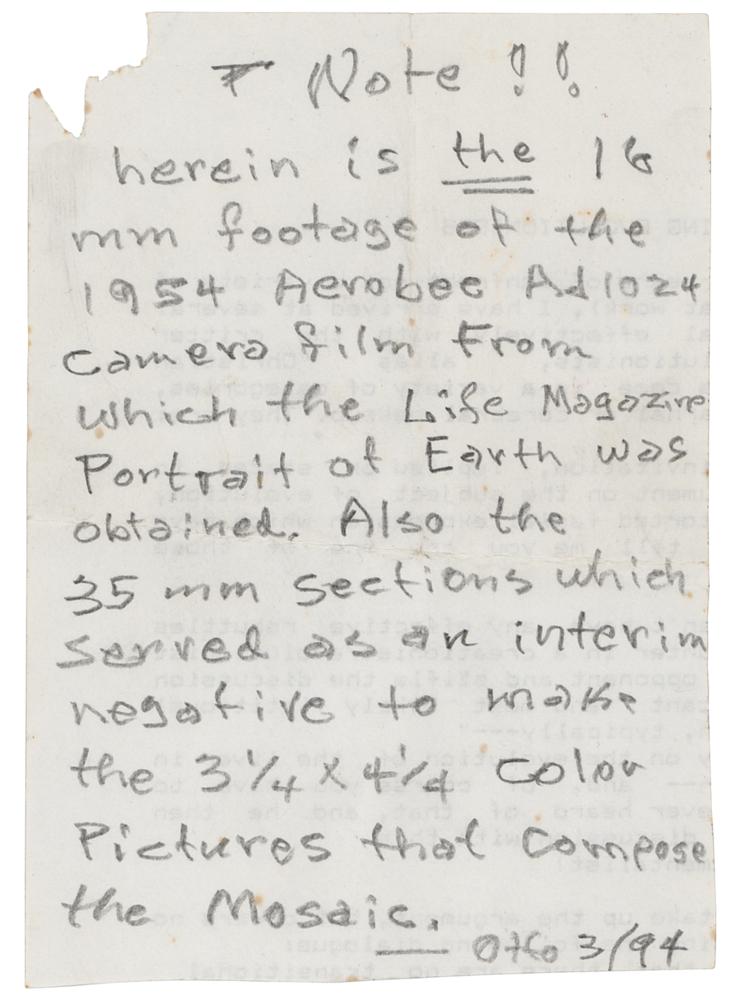 Note !!
herein is the 16
mm footage of the
1954 Aerobee Ad1024
camera film From
which the Life Magazine
Portrait of Earth was
obtained. Also the
35 mm sections which
served as an interim
negative to make
the 3 1/4 x 4 1/4 color
Pictures that compose
the Mosaic.
Otto 3/94